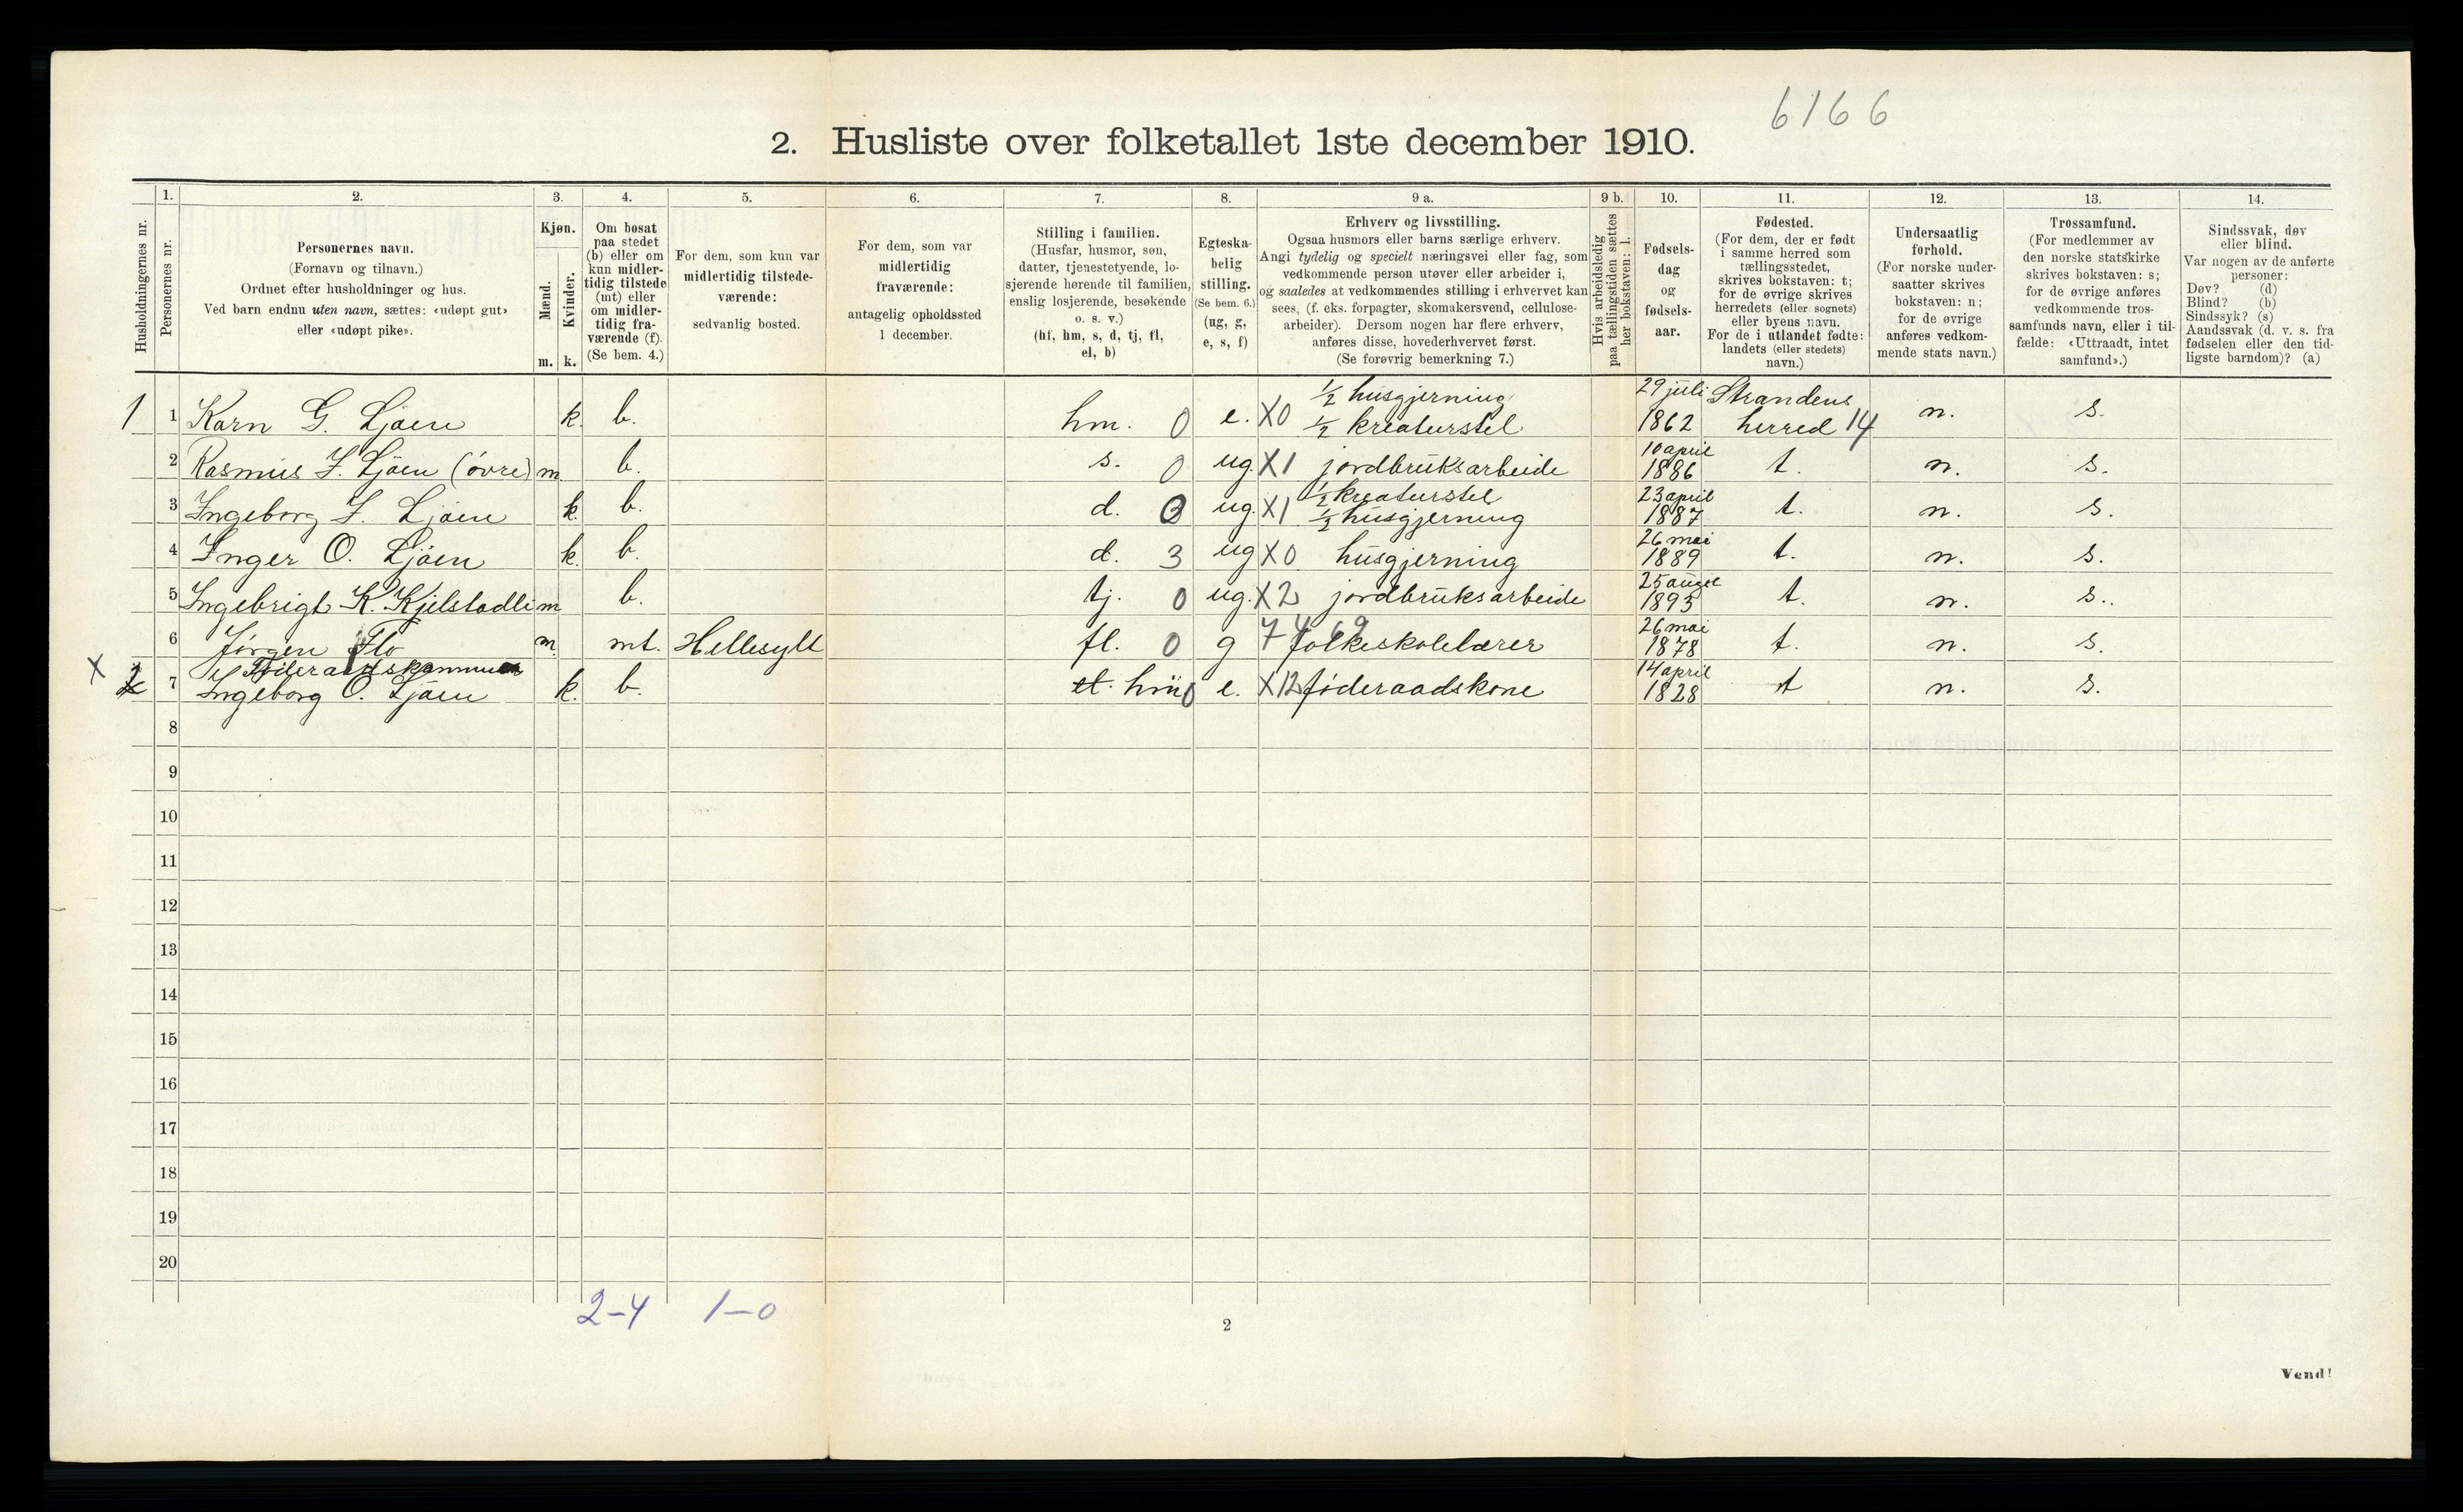 6166
2. Husliste over folketallet 1ste december 1910.
Husholdningernes nr.
1.
Personernes nr.
2.
Personernes navn.
(Fornavn og tilnavn.)
Ordnet efter husholdninger og hus.
Ved barn endnu uten navn, sættes: «udøpt gut»
eller «udøpt pike».
3.
Kjøn.
Mænd.
Kvinder.
m. k.
4.
Om bosat
paa stedet
(b) eller om
kun midler-
tidig tilstede
(mt) eller
om midler-
tidig fra-
værende (f).
(Se bem. 4.)
5.
For dem, som kun var
midlertidig tilstede-
værende:
sedvanlig bosted.
6.
For dem, som var
midlertidig
fraværende:
antagelig opholdssted
1 december.
7.
Stilling i familien.
(Husfar, husmor, søn,
datter, tjenestetyende, lo-
sjerende hørende til familien,
enslig losjerende, besøkende
o. s. v.)
(hf, hm, s, d, tj, fl,
el, b)
8.
Egteska-
belig
stilling.
(Se bem. 6.)
(ug, g,
e, s, f)
9 a.
Erhverv og livsstilling.
Ogsaa husmors eller barns særlige erhverv.
Angi tydelig og specielt næringsvei eller fag, som
vedkommende person utøver eller arbeider i,
og saaledes at vedkommendes stilling i erhvervet kan
sees, (f. eks. forpagter, skomakersvend, cellulose-
arbeider). Dersom nogen har flere erhverv,
anføres disse, hovederhvervet først.
(Se forøvrig bemerkning 7.)
9 b.
Hvis arbeidsledig
paa tællingstiden sættes
her bokstaven: l.
10.
Fødsels-
dag
og
fødsels-
aar.
11.
Fødested.
(For dem, der er født
i samme herred som
tællingsstedet,
skrives bokstaven: t;
for de øvrige skrives
herredets (eller sognets)
eller byens navn.
For de i utlandet fødte:
landets (eller stedets)
navn.)
12.
Undersaatlig
forhold.
(For norske under-
saatter skrives
bokstaven: n;
for de øvrige
anføres vedkom-
mende stats navn.)
13.
Trossamfund.
(For medlemmer av
den norske statskirke
skrives bokstaven: s;
for de øvrige anføres
vedkommende tros-
samfunds navn, eller i til-
fælde: «Uttraadt, intet
samfund».)
14.
Sindssvak, døv
eller blind.
Var nogen av de anførte
personer:
Døv? (d)
Blind? (b)
Sindssyk? (s)
Aandssvak (d. v. s. fra
fødselen eller den tid-
ligste barndom)? (a)
1 1 Karn G. Ljøen k. b. hm. 0 e. X0 ½ husgjerning ½ kreaturstel 29 juli 1862 Strandens herred 14 n. s.
2 Rasmus I. Ljøen (øvre) m. b. s. 0 ug. X1 jordbruksarbeide 10 april 1886 t. n. s.
3 Ingeborg I. Ljøen k. b. d. ug. X1 ½ kreaturstel ½ husgjerning 23 april 1887 t. n. s.
4 Inger O. Ljøen k. b. d. 3 ug X0 husgjerning 26 mai 1889 t. n. s.
5 Ingebrigt K. Kjelstadli m b. tj. 0 ug. X2 jordbruksarbeide 25 august 1895 t. n. s.
6 Jørgen Flo m. mt. Hellesylt fl. 0 g folkeskolelærer 26 mai 1878 t. n. s.
X 2 7 Føderaadskammer
Ingeborg O. Ljøen k. b. et. hm 0 e. X12 føderaadskone 14 april 1828 t n. s.
8
9
10
11
12
13
14
15
16
17
18
19
20
2-4 1-0
2
Vend!